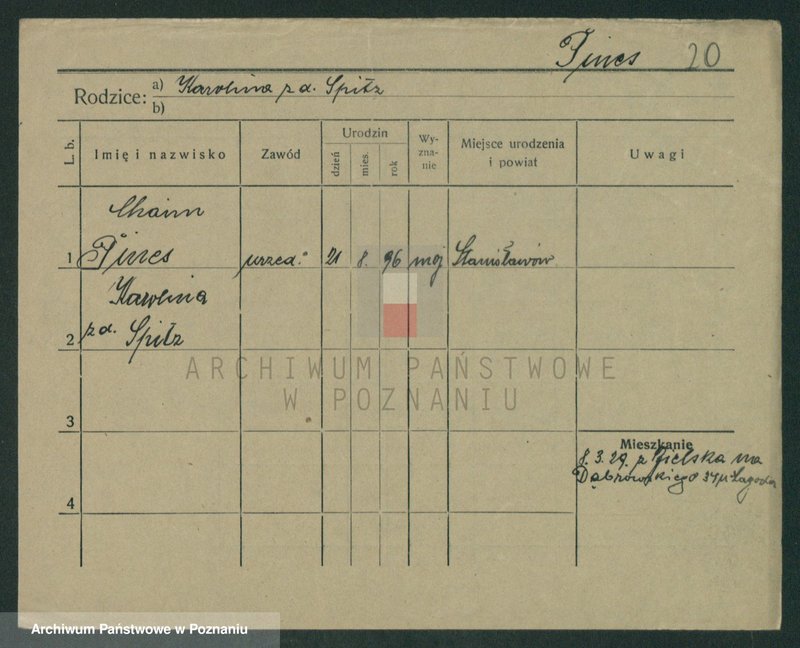 Pines 20
Rodzice: a) Karolina z d. Spitz
b)
L. b. Imię i nazwisko Zawód Urodzin dzień mies. rok Wyzna-nie Miejsce urodzenia i powiat Uwagi
Chaim
1 Pines urzęd. 21 8. 96 mojż Stanisławów.
Karolina
2 z d. Spitz
ARCHIWUM PAŃSTWOWE
W POZNANIU
3
Mieszkanie
8. 3. 29. z Bielska na
Dąbrowskiego 34 u
4
Archiwum Państwowe w Poznaniu